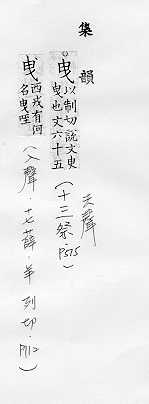 集韻
曳 以制切說文臾曳也文六十五(十三祭.P515)去聲
曳 西戎有何名曳咥(入聲.十七薛.羊列切.P712)